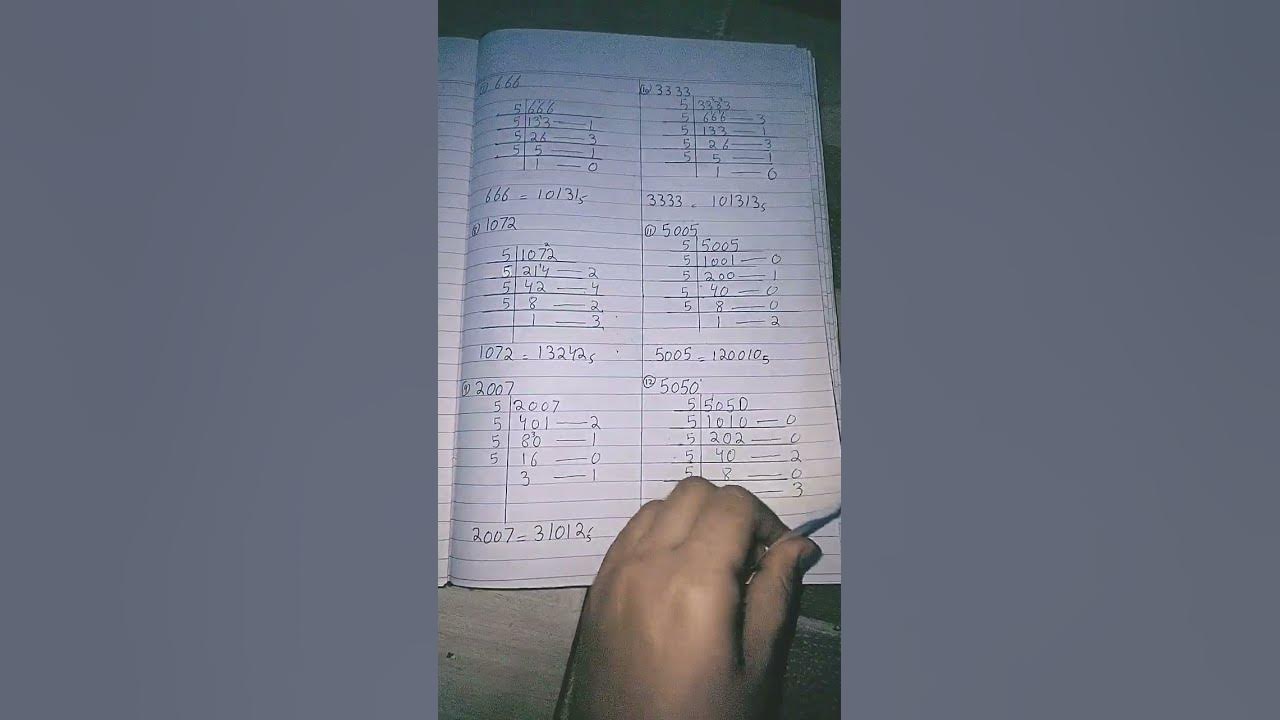 666
5 666
5 133 — 1
5 26 — 3
5 5 — 1
1 — 0
666 = 10131₅
⑧ 1072
5 1072
5 214 — 2
5 42 — 4
5 8 — 2
1 — 3
1072 = 13242₅
⑨ 2007
5 2007
5 401 — 2
5 80 — 1
5 16 — 0
3 — 1
2007 = 31012₅
⑩ 3333
5 3333
5 666 — 3
5 133 — 1
5 26 — 3
5 5 — 1
1 — 0
3333 = 101313₅
⑪ 5005
5 5005
5 1001 — 0
5 200 — 1
5 40 — 0
5 8 — 0
1 — 2
5005 = 120010₅
⑫ 5050
5 5050
5 1010 — 0
5 202 — 0
5 40 — 2
5 8 — 0
— 3